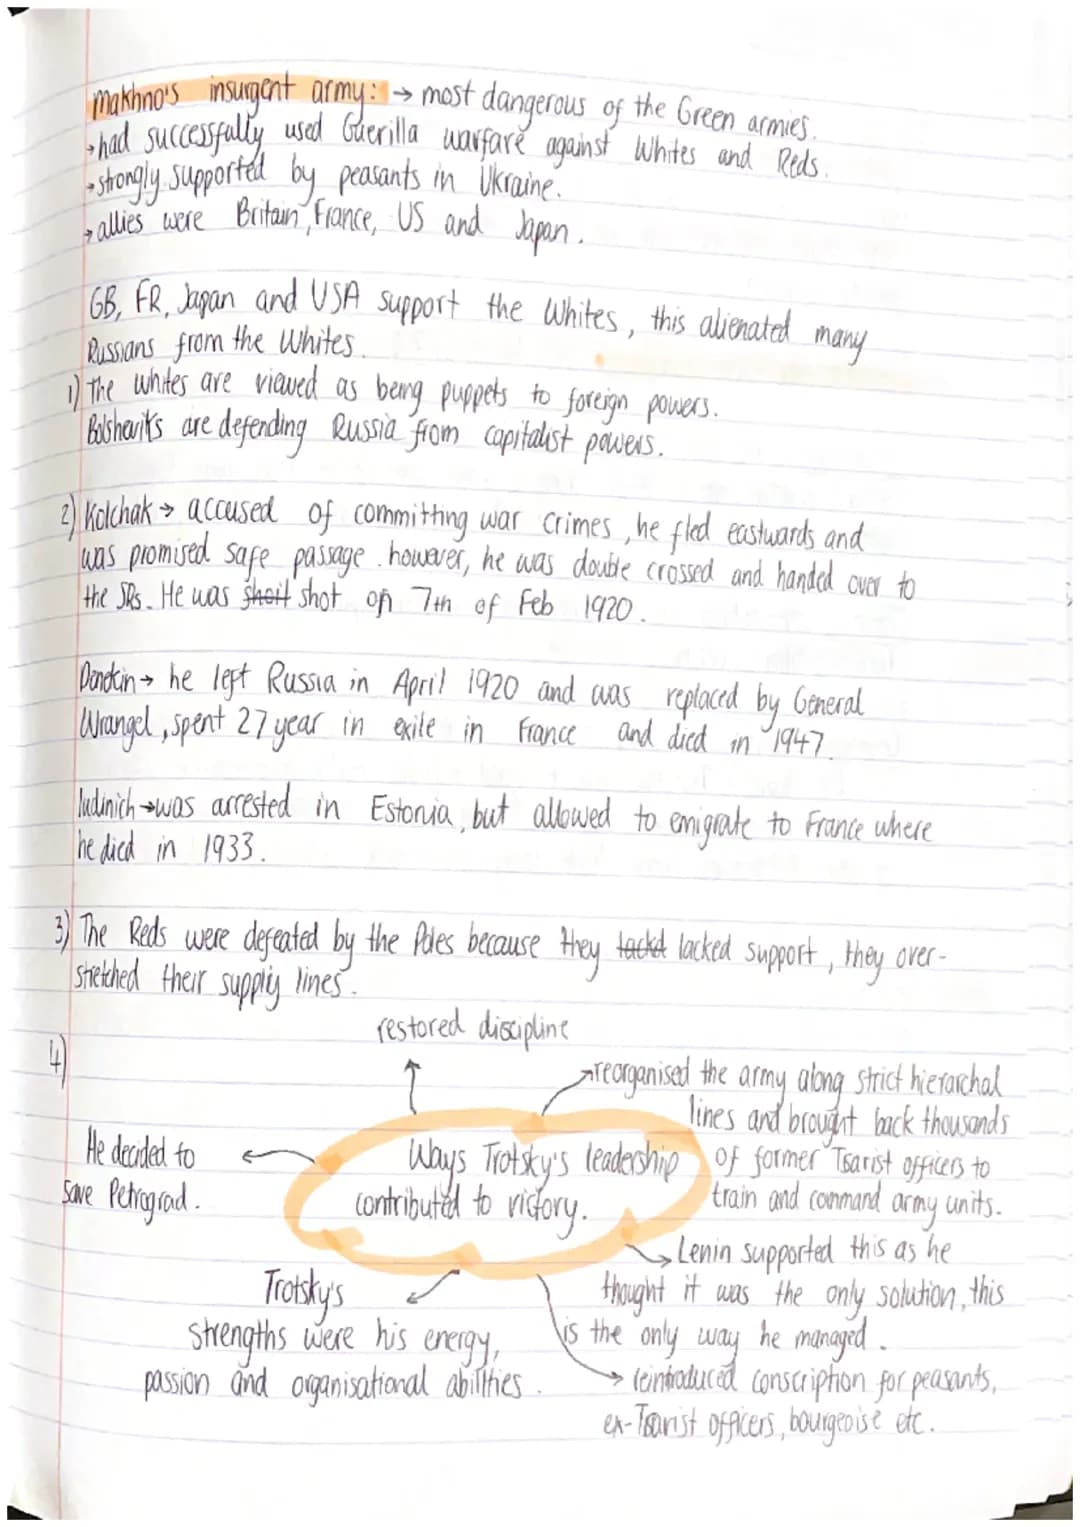 makhno's insurgent army: → most dangerous of the Green armies.
→ had successfully used Guerilla warfare against Whites and Reds.
→ strongly supported by peasants in Ukraine.
→ allies were Britain, France, US and Japan.
GB, FR, Japan and USA support the Whites, this alienated many
Russians from the Whites.
1) The whites are viewed as being puppets to foreign powers.
Bolsheviks are defending Russia from capitalist powers.
2) Kolchak → accused of committing war crimes, he fled eastwards and
was promised safe passage. however, he was double crossed and handed over to
the SRs. He was shot on 7th of Feb 1920.
Denekin → he left Russia in April 1920 and was replaced by General
Wrangel, spent 27 year in exile in France and died in 1947.
Iudinich → was arrested in Estonia, but allowed to emigrate to France where
he died in 1933.
3) The Reds were defeated by the Poles because they lackd lacked support, they over-
stretched their supply lines.
4)
restored discipline
→ reorganised the army along strict hierarchal
lines and brought back thousands
of former Tsarist officers to
train and command army units.
He decided to
save Petrograd.
Ways Trotsky's leadership
contributed to victory.
→ Lenin supported this as he
thought it was the only solution, this
is the only way he managed.
Trotsky's
strengths were his energy,
passion and organisational abilities.
→ reintroduced conscription for peasants,
ex-Tsarist officers, bourgeoise etc.